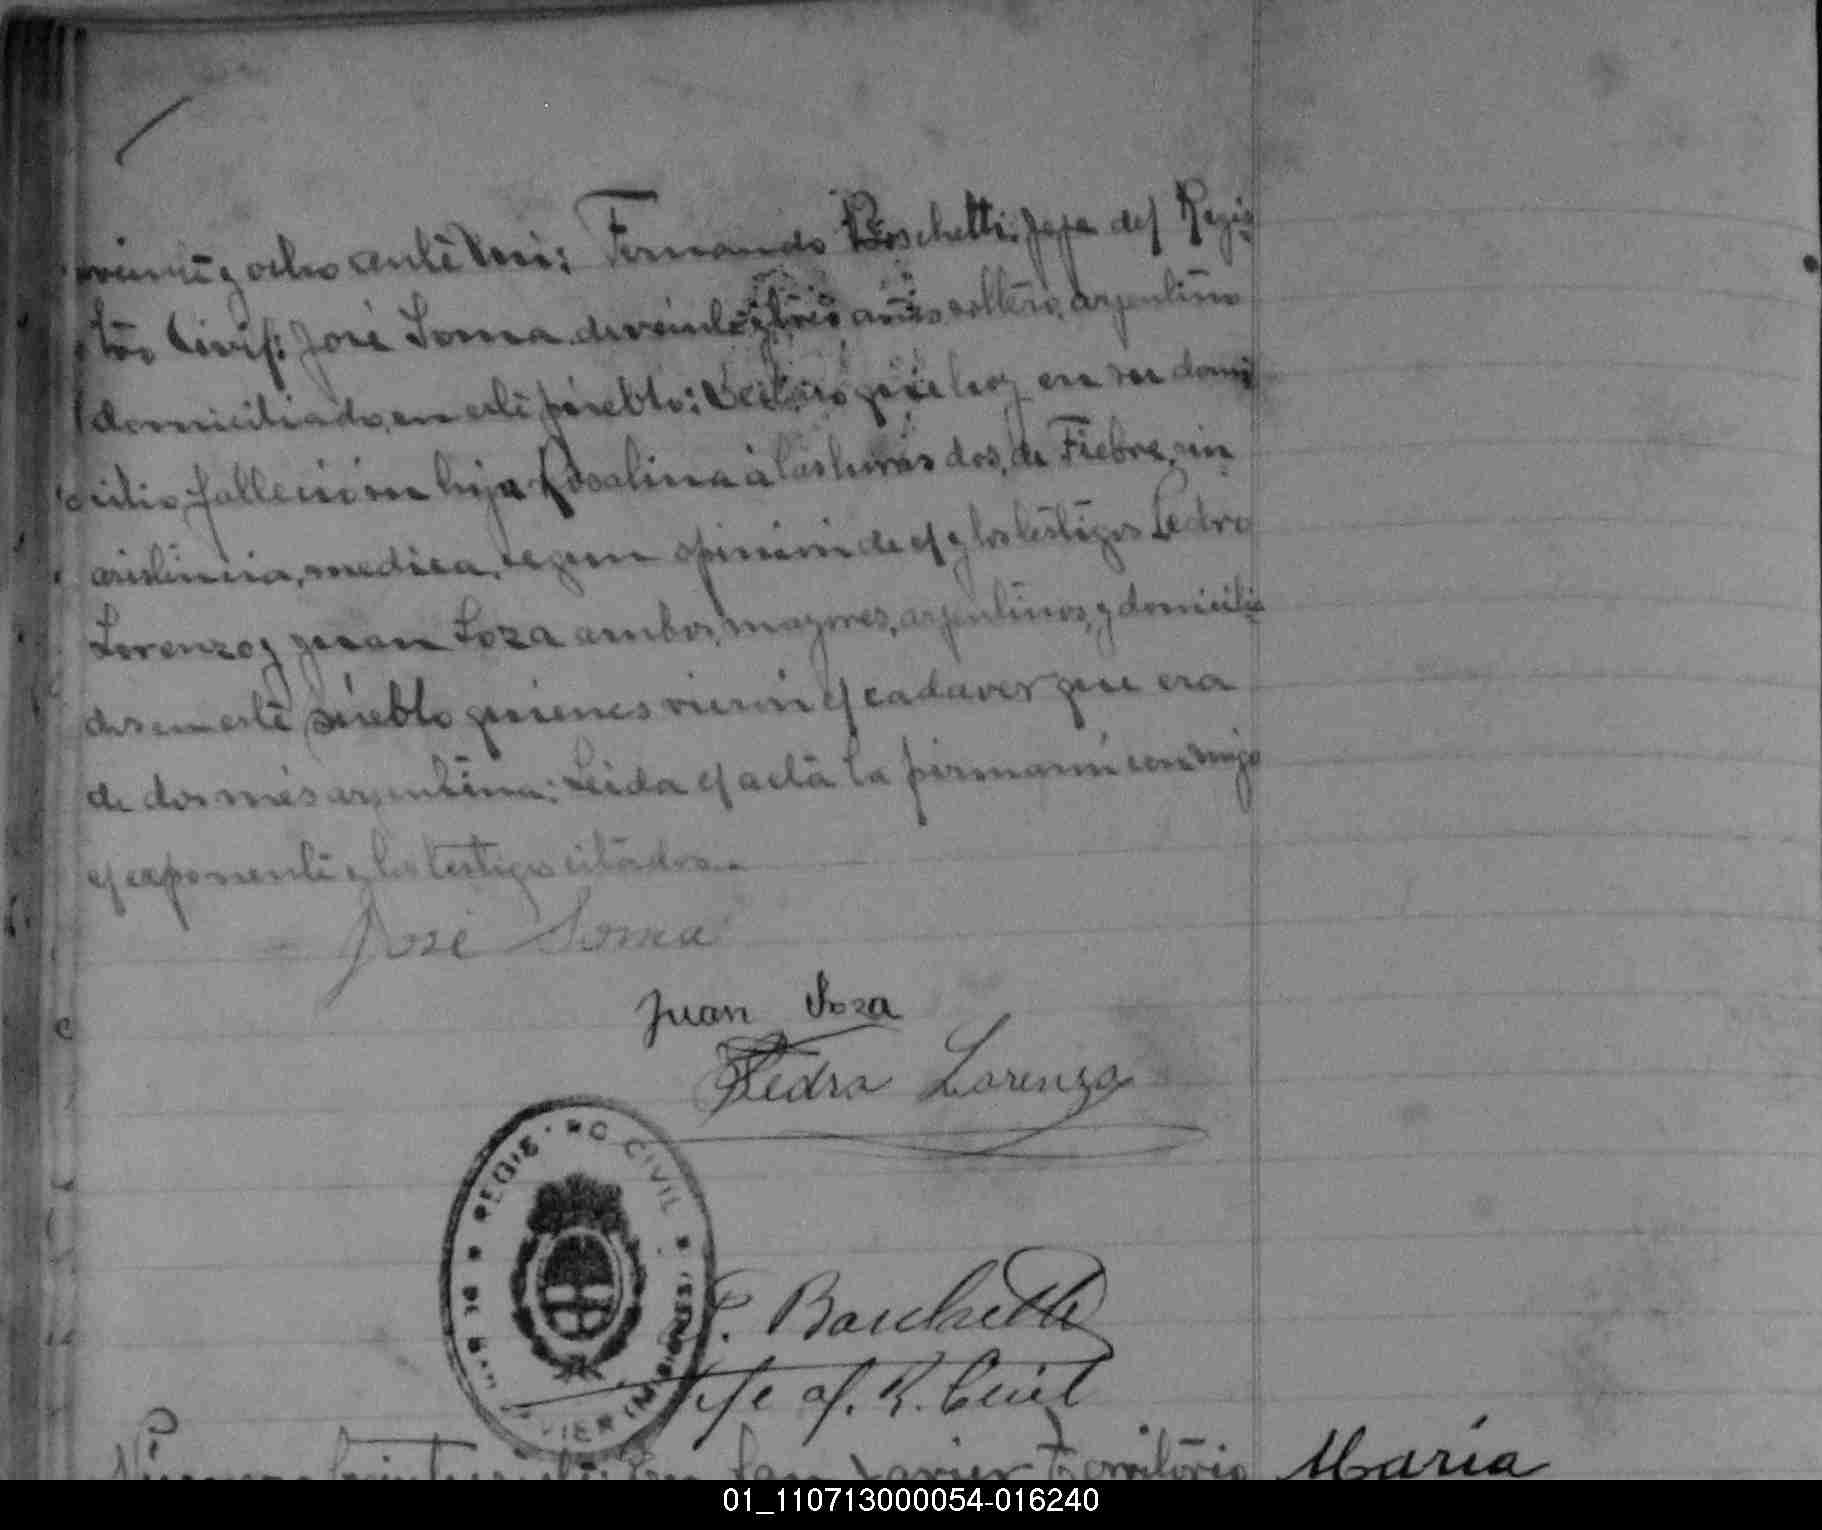 veinte y ocho ante mi: Fernando Boschetti, Jefe del Regis
tro Civil: José Soma de veinte y tres años, soltero, argentino
domiciliado, en este pueblo; declaró que hoy en su domi
cilio, fallecio su hija Rosalina á las horas dos, de Fiebre, sin
asistencia, medica, segun opinion de el y los testigos Pedro
Lorenzo y Juan Soza ambos, mayores, argentinos, y domicilia
dos en este pueblo quienes vieron el cadaver que era
de dos mes argentina: Leida el acta la firmarin conmigo
el exponente y los testigos citados.
José Soma
Juan Soza
Pedro Lorenzo
REGISTRO CIVIL
DE
VIER (MISIONES)
F. Boschetti
Jefe del R. Civil
Numero En San Javier Territorio
Maria
01_110713000054-016240